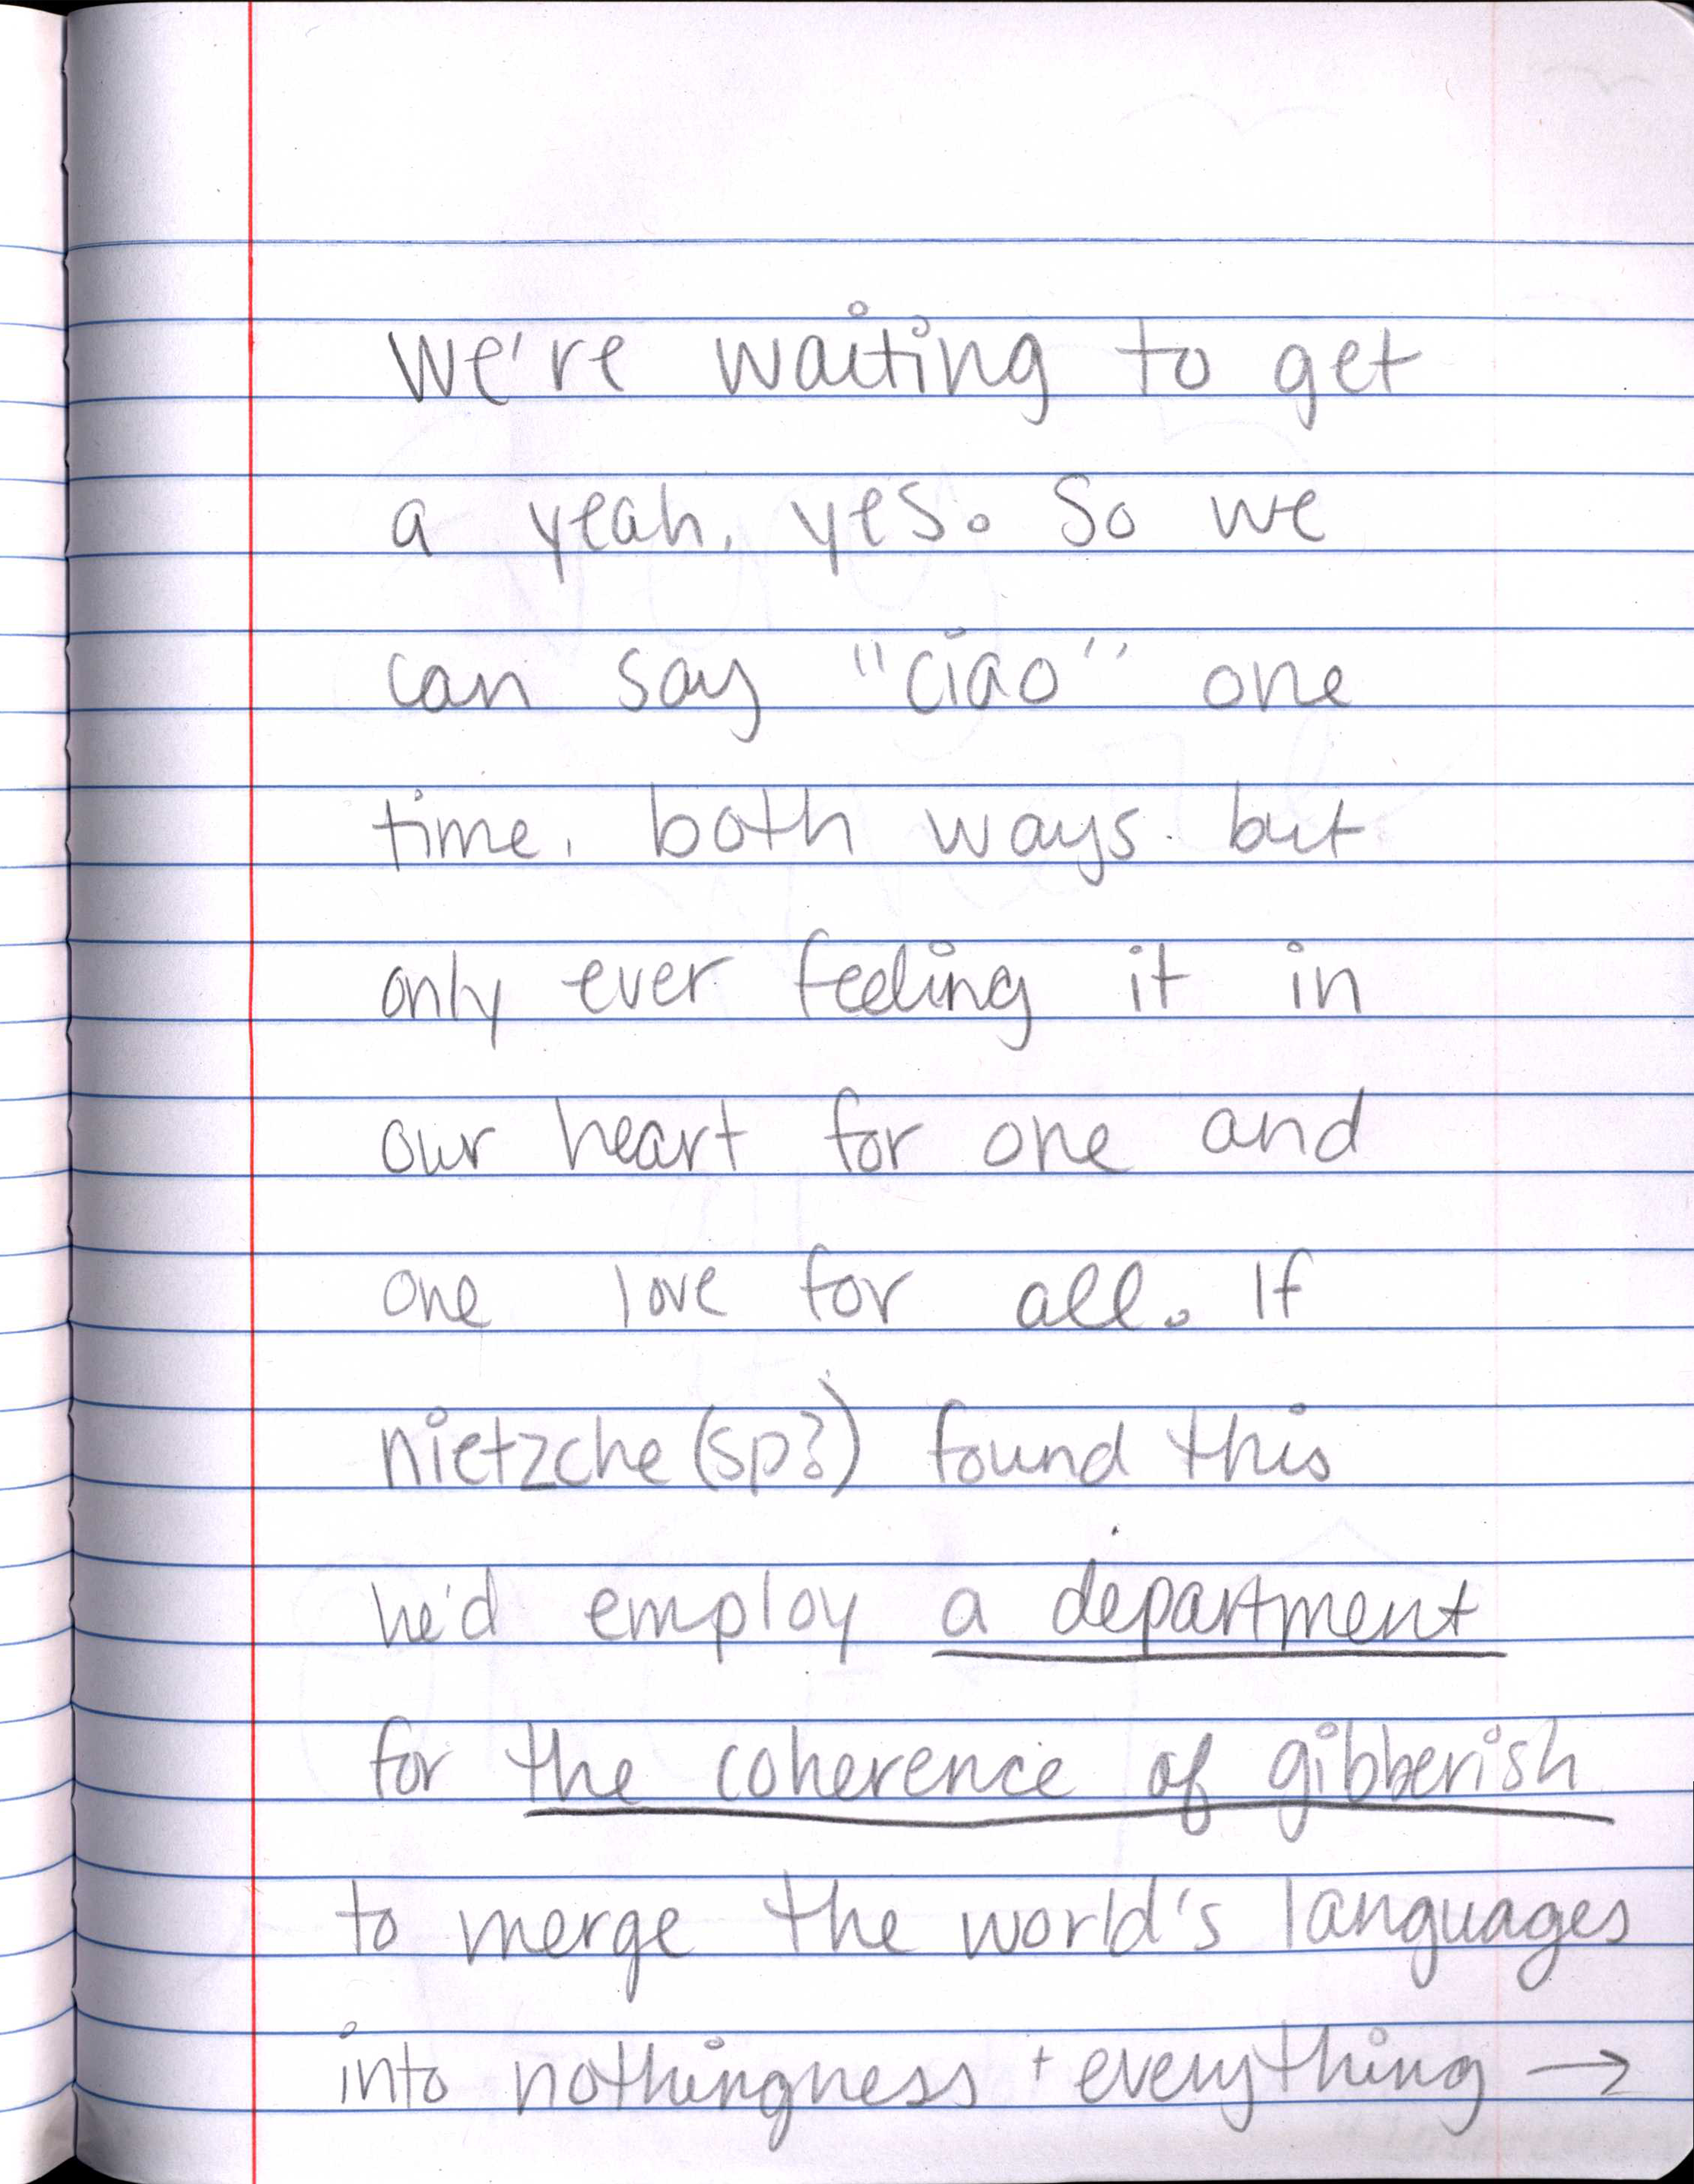 We're waiting to get
a yeah, yes. So we
can say "ciao" one
time. both ways. but
only ever feeling it in
our heart for one and
one love for all. If
nietzche (sp?) found this
he'd employ a department
for the coherence of gibberish
to merge the world's languages
into nothingness + everything →